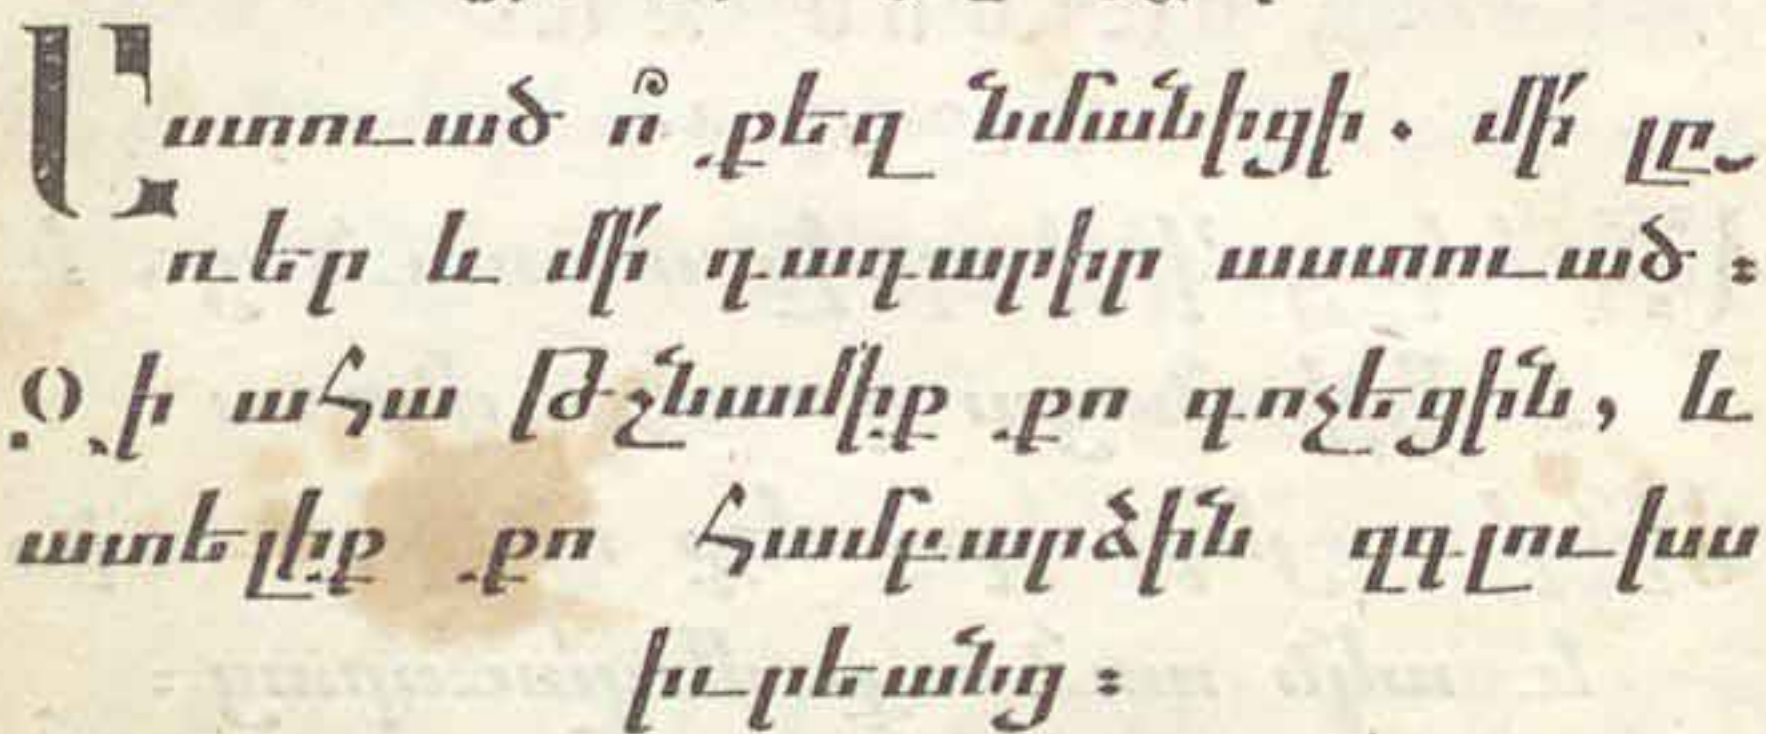 Աստուած ո՞ քեզ նմանիցի. մի՛ լը֊
ռեր և մի՛ դադարիր աստուած։
Զի ահա թշնամիք քո գոչեցին, և
ատելիք քո համբարձին զգլուխս
իւրեանց։